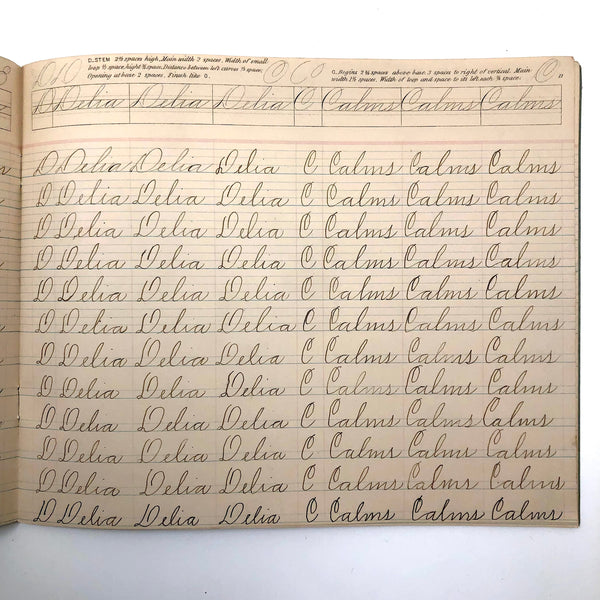 D. STEM 2½ spaces high, Main width 2 spaces, Width of small
loop ½ space, hight ¾ space. Distance between left curves ½ space;
Opening at base 2 spaces. Finish like O.
C. Begins 2¾ spaces above base. 3 spaces to right of vertical. Main
width 1½ spaces. Width of loop and space to its left, each ¾ space.
D Delia Delia Delia C Calms Calms Calms
D Delia Delia Delia C Calms Calms Calms
D Delia Delia Delia C Calms Calms Calms
D Delia Delia Delia C Calms Calms Calms
D Delia Delia Delia C Calms Calms Calms
D Delia Delia Delia C Calms Calms Calms
D Delia Delia Delia C Calms Calms Calms
D Delia Delia Delia C Calms Calms Calms
D Delia Delia Delia C Calms Calms Calms
D Delia Delia Delia C Calms Calms Calms
D Delia Delia Delia C Calms Calms Calms
D Delia Delia Delia C Calms Calms Calms
D Delia Delia Delia C Calms Calms Calms